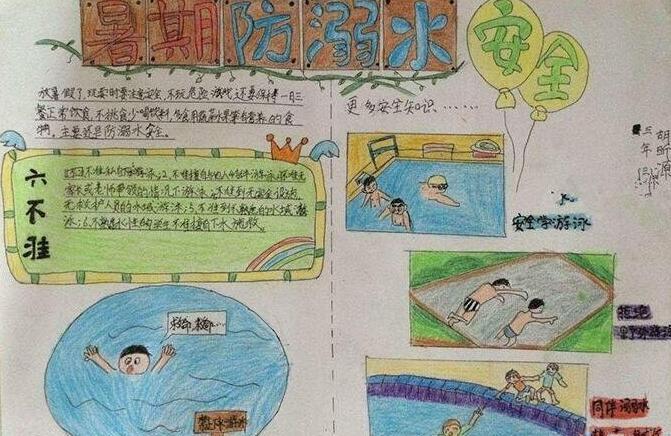 暑期防溺水
安全
放暑假了,玩耍时要注意安全,不玩危险游戏,还要保持一日三
餐正常饮食,不挑食少喝饮料,多食用蔬菜水果等有营养的食
物,主要就是防溺水安全。
更多安全知识……
三年
胡昕源
六不准
1.不准私自下水游泳;2.不准擅自与他人结伴游泳;3.不准在无
家长或老师带领的情况下游泳;4.不准到无安全设施、
无救护人员的水域游泳;5.不准到不熟悉的水域游
泳;6.不熟悉水性的学生不准擅自下水施救。
安全学游泳
救命,救命…
拒绝
野外游泳
禁止游泳
同伴溺水